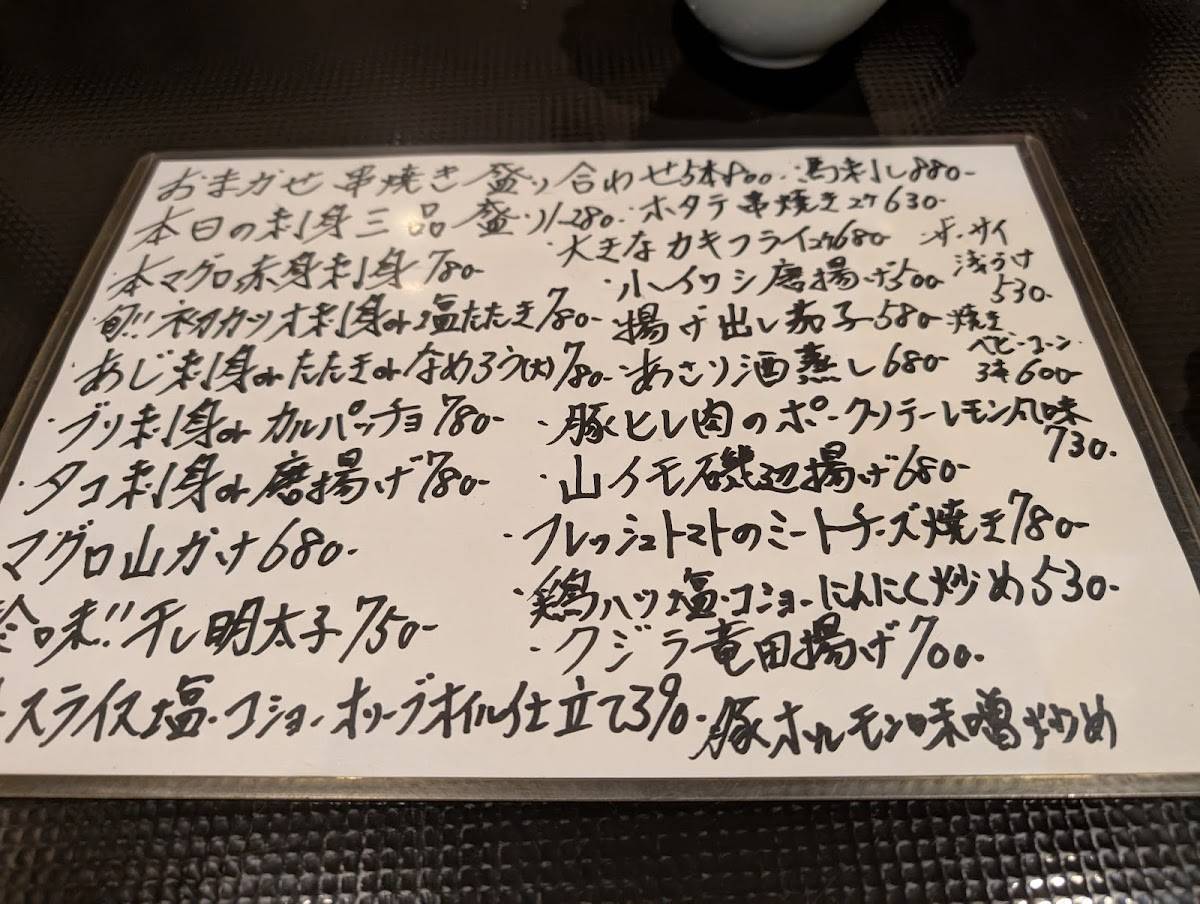 おまかせ串焼き盛り合わせ5本800.
本日の刺身三品盛り1280.
本マグロ赤身刺身780-
旬!!初カツオ刺身or塩たたき780-
あじ刺身orたたきorなめろう(大)780-
・ブリ刺身orカルパッチョ780-
・タコ刺身or唐揚げ780-
マグロ山かけ680-
珍味!!干し明太子750-
スライス塩・コショーオリーブオイル仕立て390.
・馬刺し880-
・ホタテ串焼き2ケ630-
大きなカキフライ2ケ680-
・小イワシ唐揚げ500
揚げ出し茄子580-
・あさり酒蒸し680-
・豚ヒレ肉のポークソテーレモン風味
730.
・山イモ磯辺揚げ680-
・フレッシュトマトのミートチーズ焼き780-
・鶏ハツ塩・コショーにんにく炒め530.
・クジラ竜田揚げ700.
豚ホルモン味噌炒め
・ザーサイ
浅づけ
530.
・焼き
ベビーコーン・
3本600-